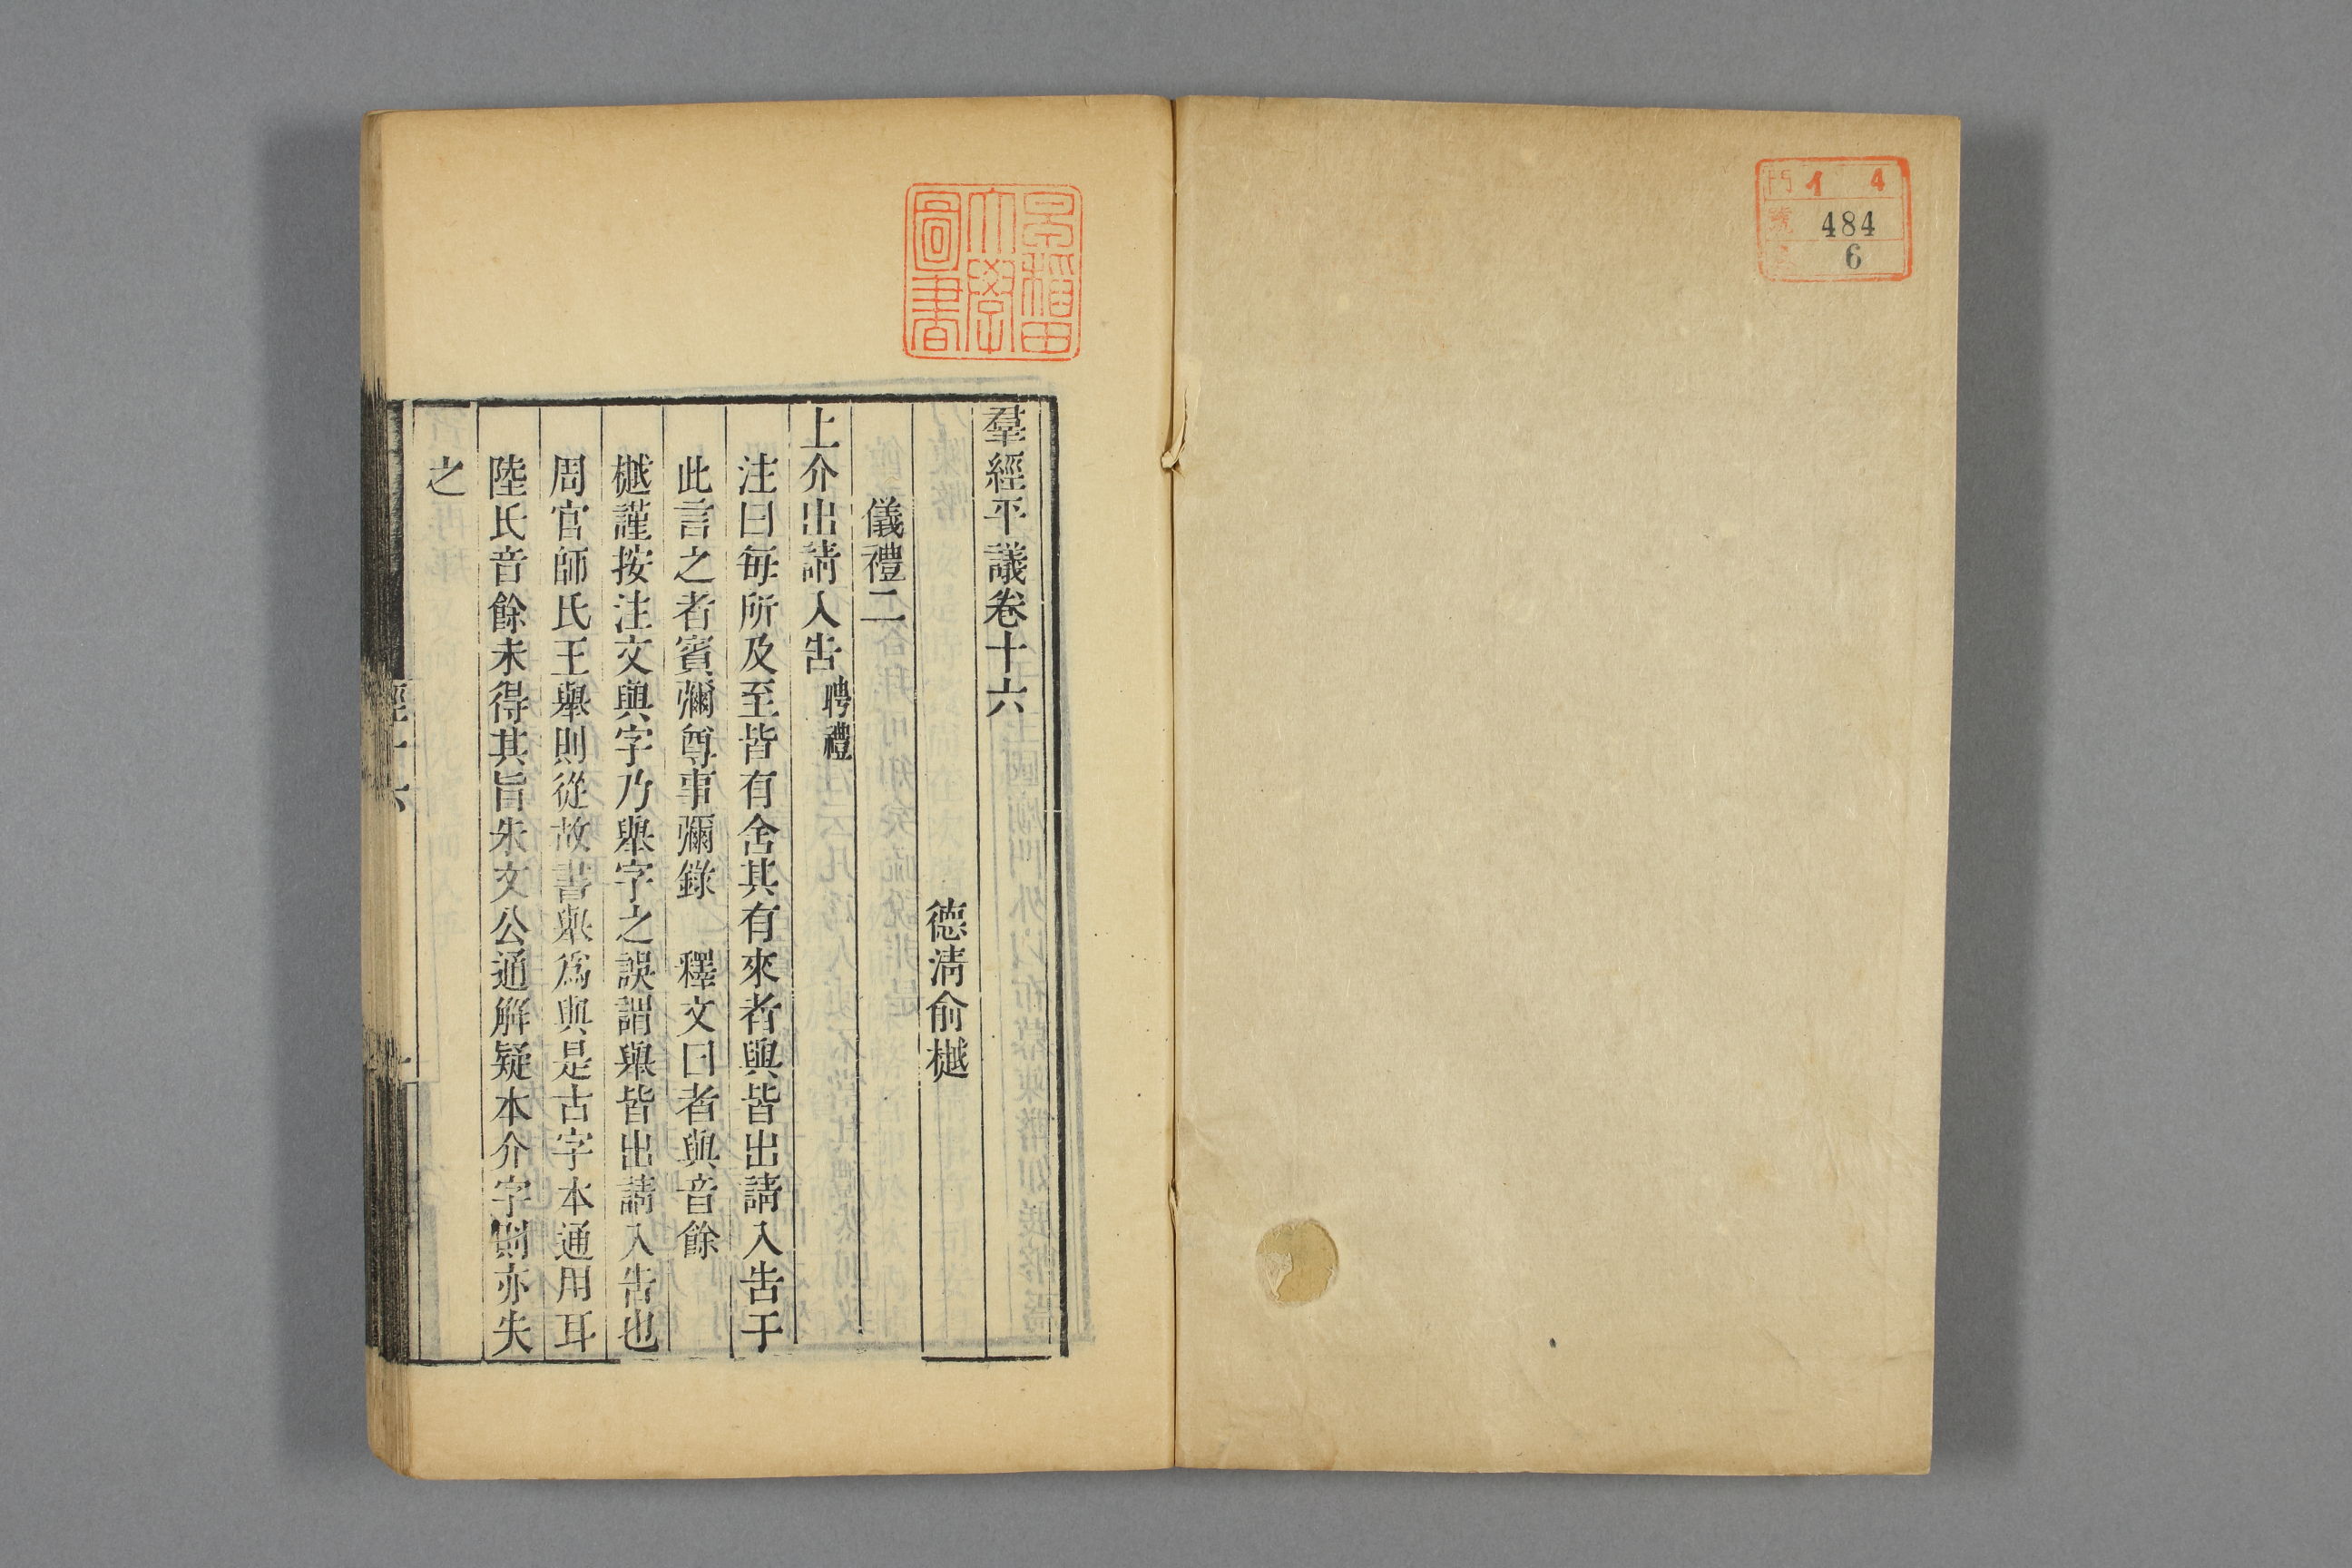 門 1 4
號 484
6
早稲田
大學
圖書
羣經平議卷十六
德清俞樾
儀禮二
上介出請入告聘禮
注曰每所及至皆有舍其有來者與皆出請入告于
此言之者賓彌尊事彌錄 釋文曰者與音餘
樾謹按注文與字乃舉字之誤謂舉皆出請入告也
周官師氏王舉則從故書舉爲與是古字本通用耳
陸氏音餘未得其旨朱文公通解疑本介字則亦失
之
經十六
一